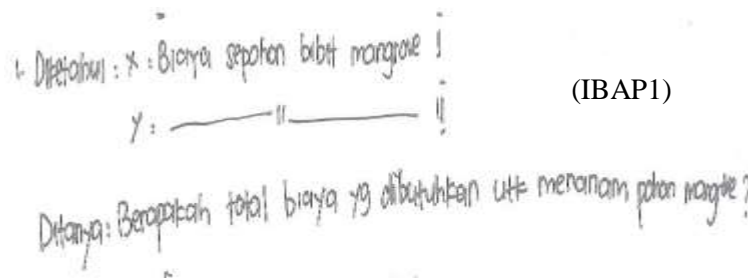 1. Diketahui : x : Biaya sepohon bibit mangrove I
(IBAP1)
y : —— 〃 —— II
Ditanya : Berapakah total biaya yg dibutuhkan utk menanam pohon mangrove?